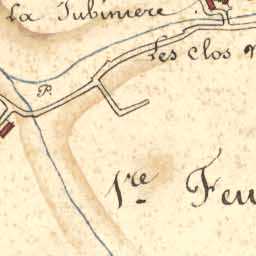 La Jubinière
Les Clos
P.
1re Feu